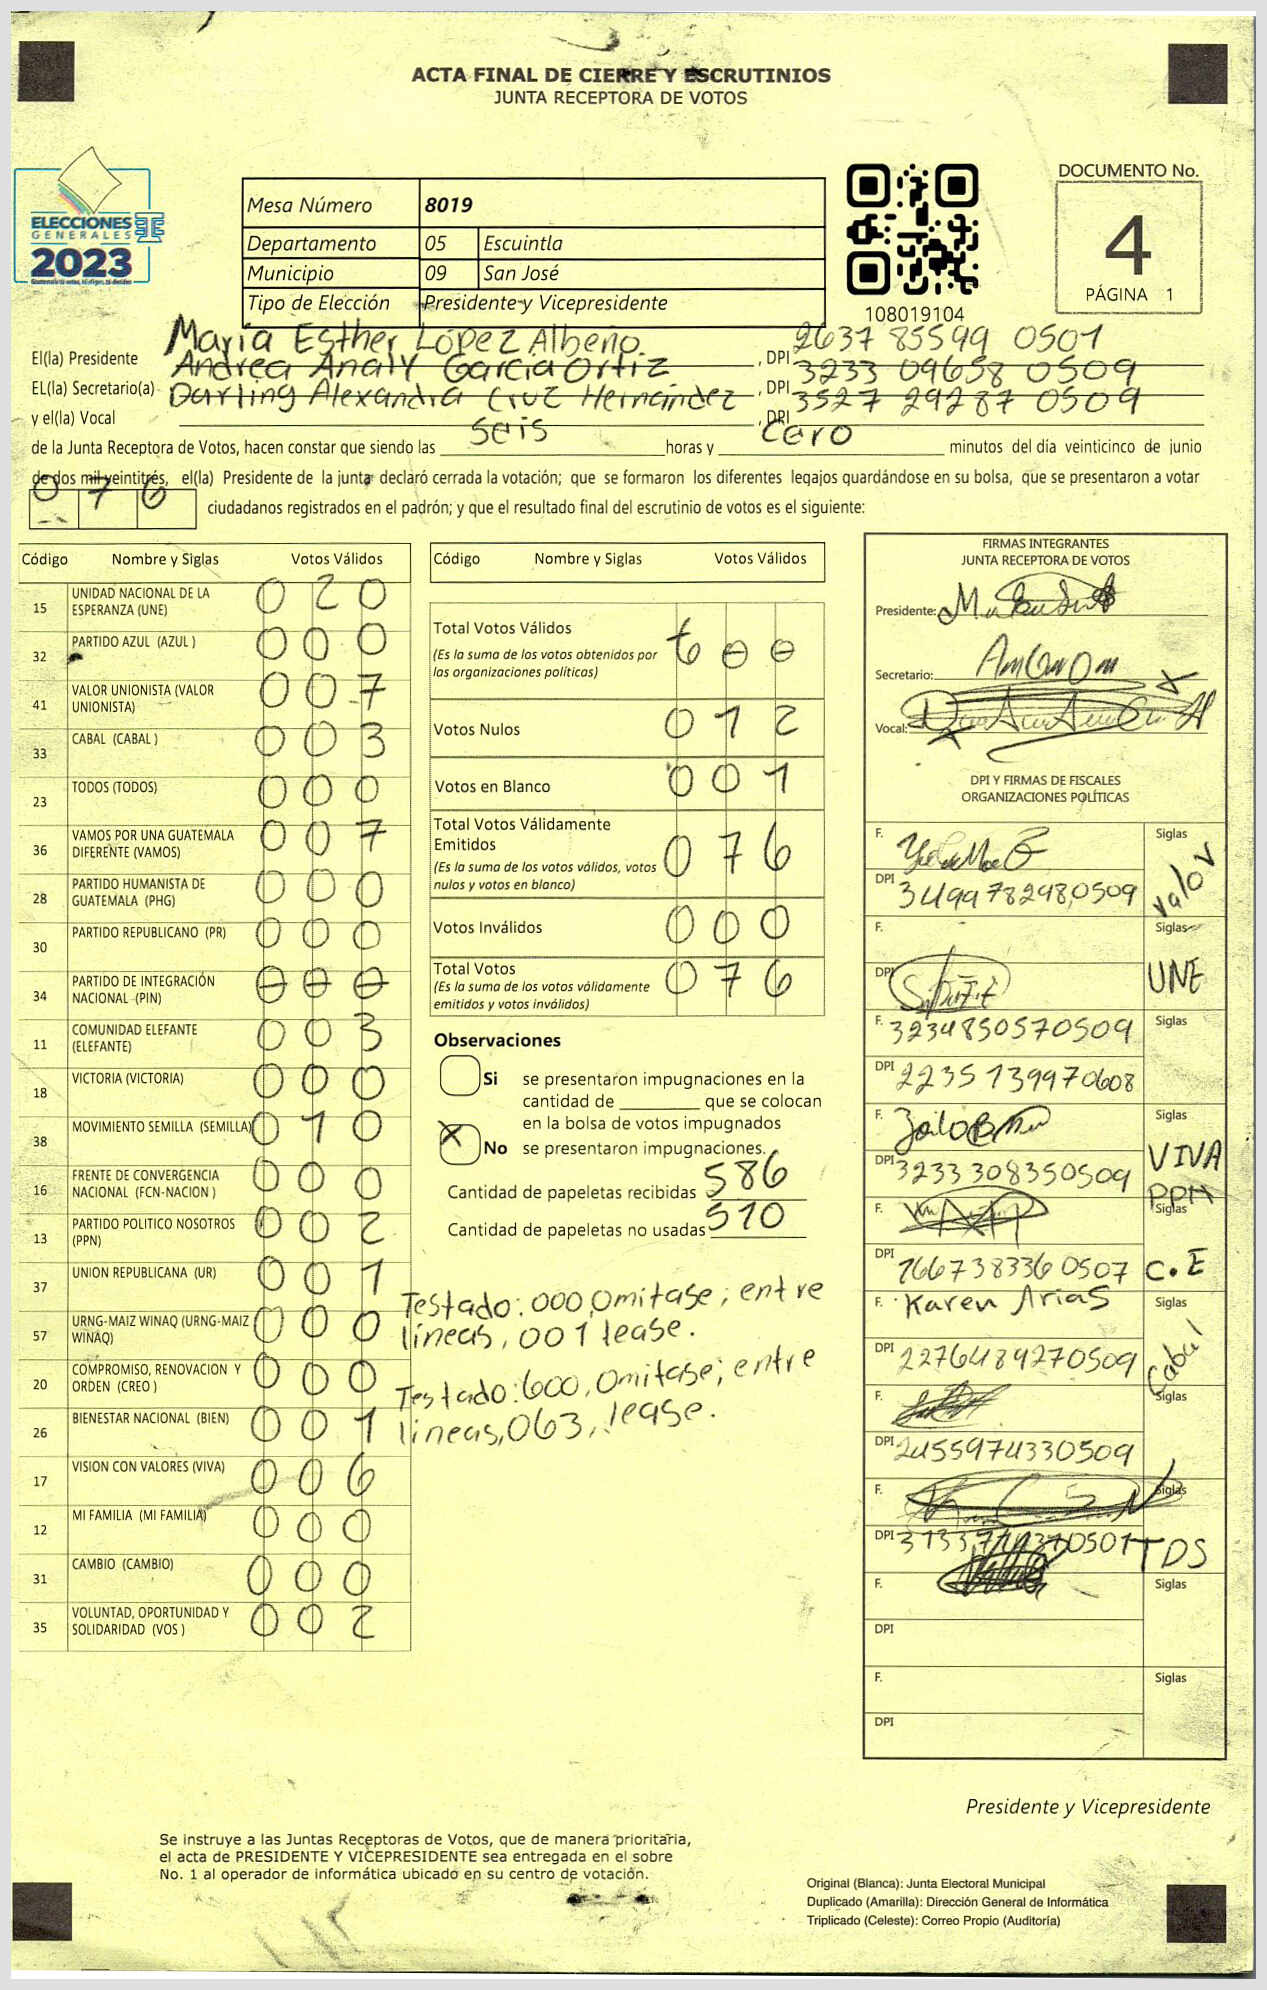 ACTA FINAL DE CIERRE Y ESCRUTINIOS
JUNTA RECEPTORA DE VOTOS
ELECCIONES
GENERALES
2023
Mesa Número 8019
Departamento 05 Escuintla
Municipio 09 San José
Tipo de Elección Presidente y Vicepresidente
108019104
DOCUMENTO No.
4
PÁGINA 1
El(la) Presidente María Esther López Albeño, DPI 2637 85599 0501
EL(la) Secretario(a) Andrea Analy García Ortiz, DPI 3233 09658 0509
y el(la) Vocal Darling Alexandra Cruz Hernández, DPI 3527 29287 0509
de la Junta Receptora de Votos, hacen constar que siendo las seis horas y cero minutos del día veinticinco de junio
de dos mil veintitrés, el(la) Presidente de la junta declaró cerrada la votación; que se formaron los diferentes legajos guardándose en su bolsa, que se presentaron a votar
076 ciudadanos registrados en el padrón; y que el resultado final del escrutinio de votos es el siguiente:
Código Nombre y Siglas Votos Válidos
15 UNIDAD NACIONAL DE LA ESPERANZA (UNE) 0 2 0
32 PARTIDO AZUL (AZUL ) 0 0 0
41 VALOR UNIONISTA (VALOR UNIONISTA) 0 0 7
33 CABAL (CABAL ) 0 0 3
23 TODOS (TODOS) 0 0 0
36 VAMOS POR UNA GUATEMALA DIFERENTE (VAMOS) 0 0 7
28 PARTIDO HUMANISTA DE GUATEMALA (PHG) 0 0 0
30 PARTIDO REPUBLICANO (PR) 0 0 0
34 PARTIDO DE INTEGRACIÓN NACIONAL (PIN) 0 0 0
11 COMUNIDAD ELEFANTE (ELEFANTE) 0 0 3
18 VICTORIA (VICTORIA) 0 0 0
38 MOVIMIENTO SEMILLA (SEMILLA) 0 1 0
16 FRENTE DE CONVERGENCIA NACIONAL (FCN-NACION ) 0 0 0
13 PARTIDO POLITICO NOSOTROS (PPN) 0 0 2
37 UNION REPUBLICANA (UR) 0 0 1
57 URNG-MAIZ WINAQ (URNG-MAIZ WINAQ) 0 0 0
20 COMPROMISO, RENOVACION Y ORDEN (CREO ) 0 0 0
26 BIENESTAR NACIONAL (BIEN) 0 0 1
17 VISION CON VALORES (VIVA) 0 0 6
12 MI FAMILIA (MI FAMILIA) 0 0 0
31 CAMBIO (CAMBIO) 0 0 0
35 VOLUNTAD, OPORTUNIDAD Y SOLIDARIDAD (VOS ) 0 0 2
Código Nombre y Siglas Votos Válidos
Total Votos Válidos 6 0 0
(Es la suma de los votos obtenidos por
las organizaciones políticas)
Votos Nulos 0 1 2
Votos en Blanco 0 0 1
Total Votos Válidamente
Emitidos 0 7 6
(Es la suma de los votos válidos, votos
nulos y votos en blanco)
Votos Inválidos 0 0 0
Total Votos 0 7 6
(Es la suma de los votos válidamente
emitidos y votos inválidos)
Observaciones
Si se presentaron impugnaciones en la
cantidad de ________ que se colocan
en la bolsa de votos impugnados
X No se presentaron impugnaciones.
Cantidad de papeletas recibidas 586
Cantidad de papeletas no usadas 510
Testado: 000, omitase; entre
líneas, 001 lease.
Testado: 600, omitase; entre
líneas, 063, lease.
FIRMAS INTEGRANTES
JUNTA RECEPTORA DE VOTOS
Presidente:
Secretario:
Vocal:
DPI Y FIRMAS DE FISCALES
ORGANIZACIONES POLÍTICAS
F. Siglas Valor
DPI 3499782980509
F. Siglas UNE
DPI
F. 3234850570509 Siglas
DPI 2235139970608
F. Siglas VIVA
DPI 3233308350509 PPN
F. Siglas
DPI 1667383360507 C.E
F. Karen Arias Siglas Cabal
DPI 2276484270509
F. Siglas
DPI 2455974330509
F. Siglas
DPI TDS
F. Siglas
DPI
F. Siglas
DPI
Presidente y Vicepresidente
Se instruye a las Juntas Receptoras de Votos, que de manera prioritaria,
el acta de PRESIDENTE Y VICEPRESIDENTE sea entregada en el sobre
No. 1 al operador de informática ubicado en su centro de votación.
Original (Blanca): Junta Electoral Municipal
Duplicado (Amarilla): Dirección General de Informática
Triplicado (Celeste): Correo Propio (Auditoría)